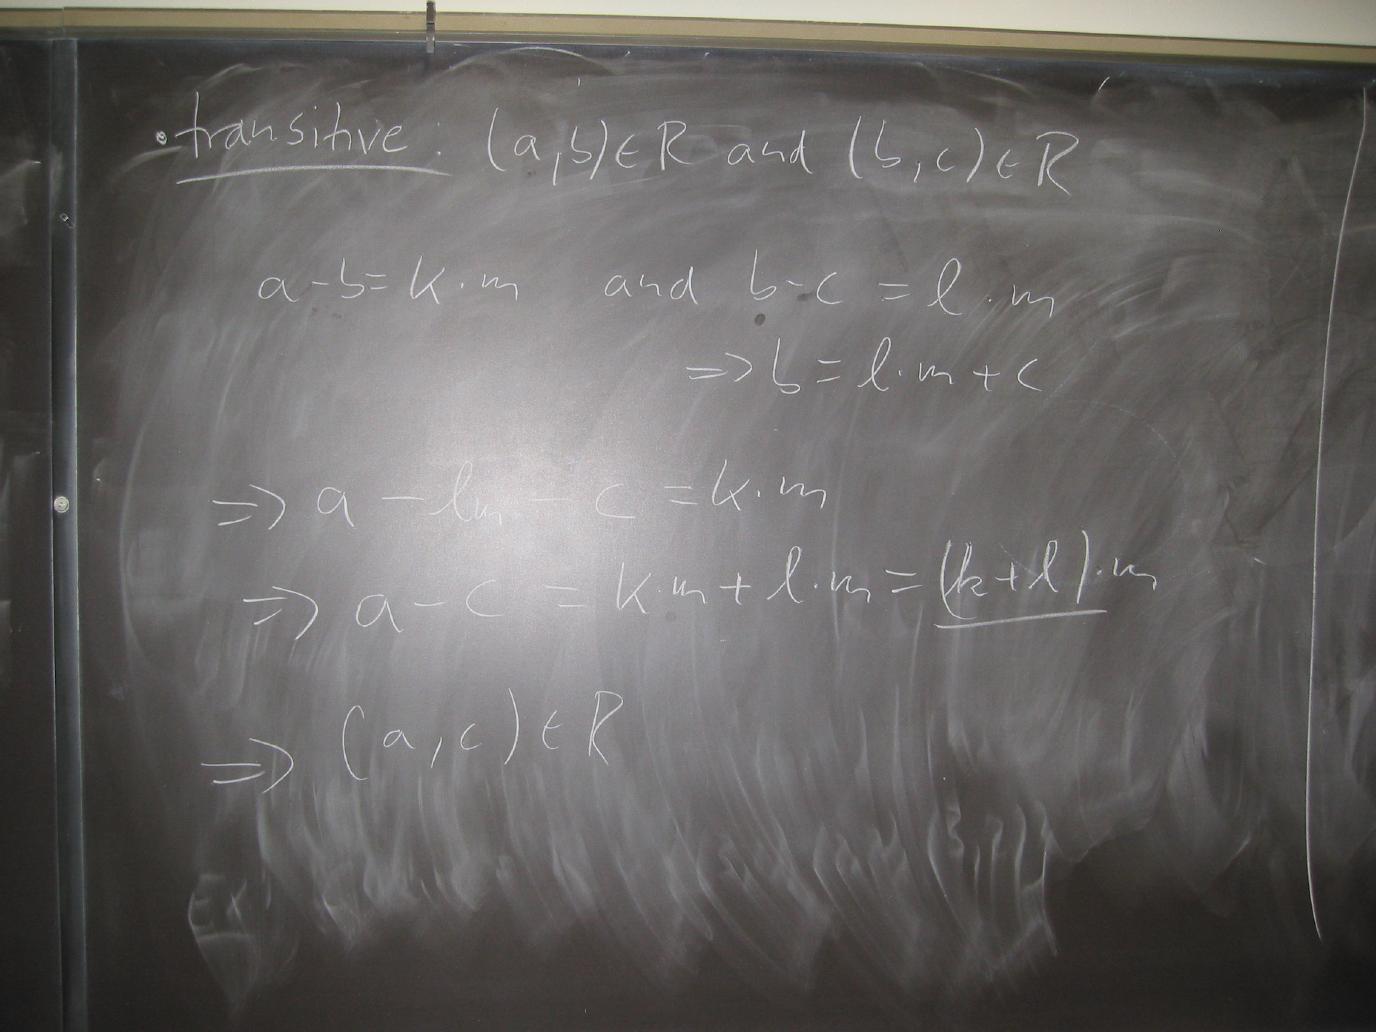 • transitive: (a,b)∈R and (b,c)∈R
a-b=k·m and b-c=l·m
⇒b=l·m+c
⇒a-lm-c=k·m
⇒a-c=k·m+l·m=(k+l)·m
⇒(a,c)∈R